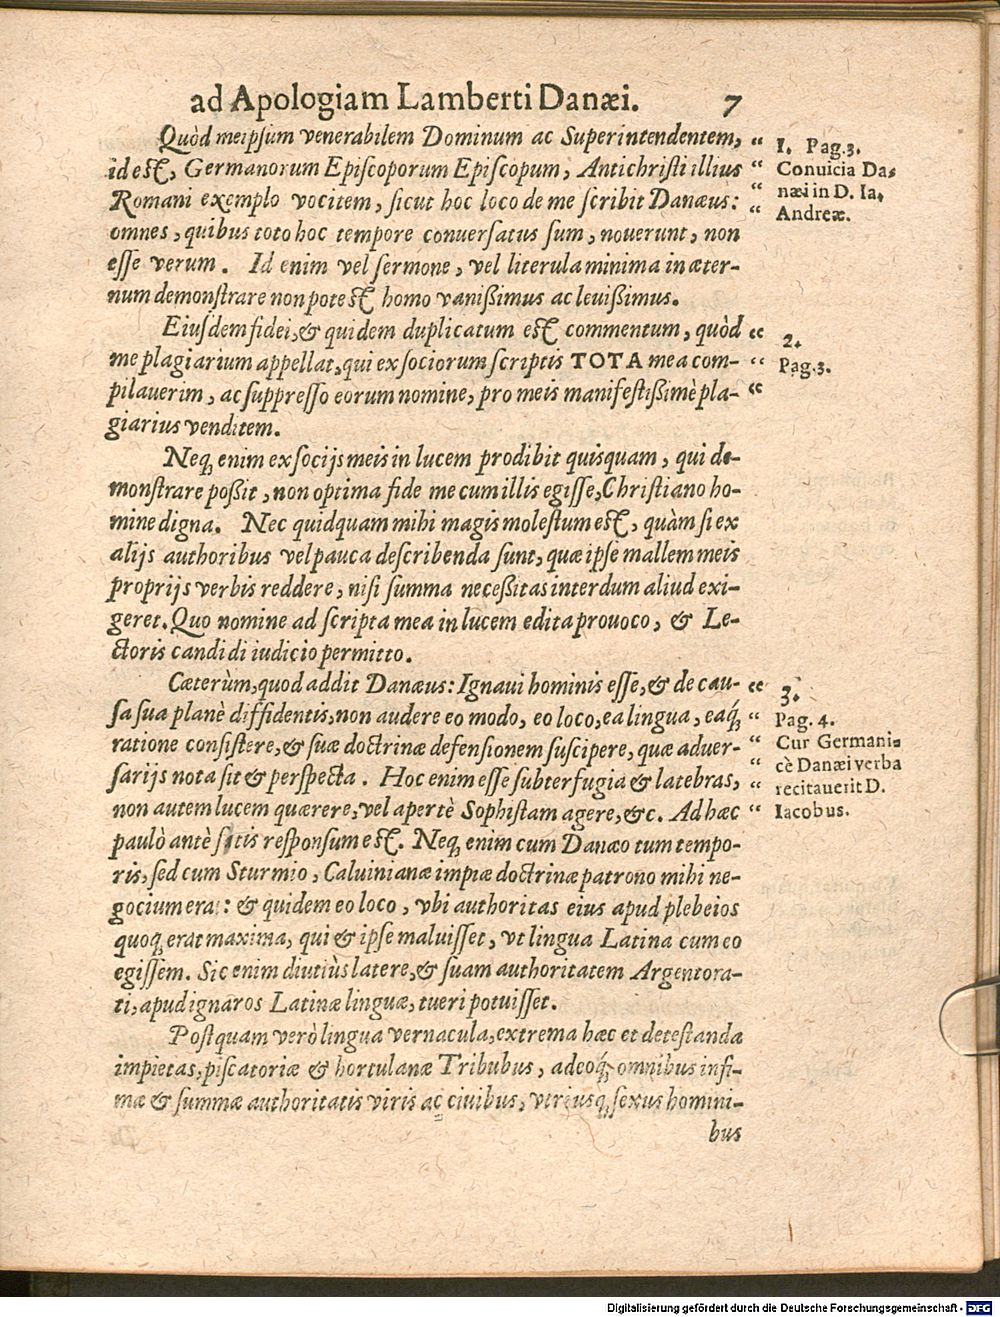 ad Apologiam Lamberti Danæi. 7
Quòd meipſum venerabilem Dominum ac Superintendentem, “
id eſt, Germanorum Epiſcoporum Epiſcopum, Antichriſti illius “
Romani exemplo vocitem, ſicut hoc loco de me ſcribit Danæus: “
omnes, quibus toto hoc tempore conuerſatus ſum, nouerunt, non “
eſſe verum. Id enim vel ſermone, vel literula minima in æter-
num demonſtrare non poteſt homo vanißimus ac leuißimus.
1. Pag.3.
Conuicia Da-
næi in D. Ia.
Andreæ.
Eiuſdem fidei, & quidem duplicatum eſt commentum, quòd “
me plagiarium appellat, qui ex ſociorum ſcriptis TOTA mea com- “
pilauerim, ac ſuppreſſo eorum nomine, pro meis manifeſtißimè pla- “
giarius venditem.
2.
Pag.3.
Neq́ enim ex ſocijs meis in lucem prodibit quisquam, qui de-
monſtrare poßit, non optima fide me cum illis egiſſe, Chriſtiano ho-
mine digna. Nec quidquam mihi magis moleſtum eſt, quàm ſi ex
alijs authoribus vel pauca deſcribenda ſunt, quæ ipſe mallem meis
proprijs verbis reddere, niſi ſumma neceßitas interdum aliud exi-
geret. Quo nomine ad ſcripta mea in lucem edita prouoco, & Le-
ctoris candidi iudicio permitto.
Cæterùm, quod addit Danæus: Ignaui hominis eſſe, & de cau- “
ſa ſua planè diffidentis, non audere eo modo, eo loco, ea lingua, eaq́ “
ratione conſiſtere, & ſuæ doctrinæ defenſionem ſuſcipere, quæ aduer- “
ſarijs nota ſit & perſpecta. Hoc enim eſſe ſubterfugia & latebras, “
non autem lucem quærere, vel apertè Sophiſtam agere, &c. Ad hæc “
paulò antè ſatis reſponſum eſt. Neq́ enim cum Danæo tum tempo-
ris, ſed cum Sturmio, Caluinianæ impiæ doctrinæ patrono mihi ne-
gocium erat: & quidem eo loco, vbi authoritas eius apud plebeios
quoq́ erat maxima, qui & ipſe maluiſſet, vt lingua Latina cum eo
egiſſem. Sic enim diutiùs latere, & ſuam authoritatem Argentora-
ti, apud ignaros Latinæ linguæ, tueri potuiſſet.
3.
Pag. 4.
Cur Germani-
cè Danæi verba
recitauerit D.
Iacobus.
Poſtquam verò lingua vernacula, extrema hæc et deteſtanda
impietas, piſcatoriæ & hortulanæ Tribubus, adeoq́ omnibus infi-
mæ & ſummæ authoritatis viris ac ciuibus, vtriusq́ ſexus homini-
bus
Digitalisierung gefördert durch die Deutsche Forschungsgemeinschaft - DFG